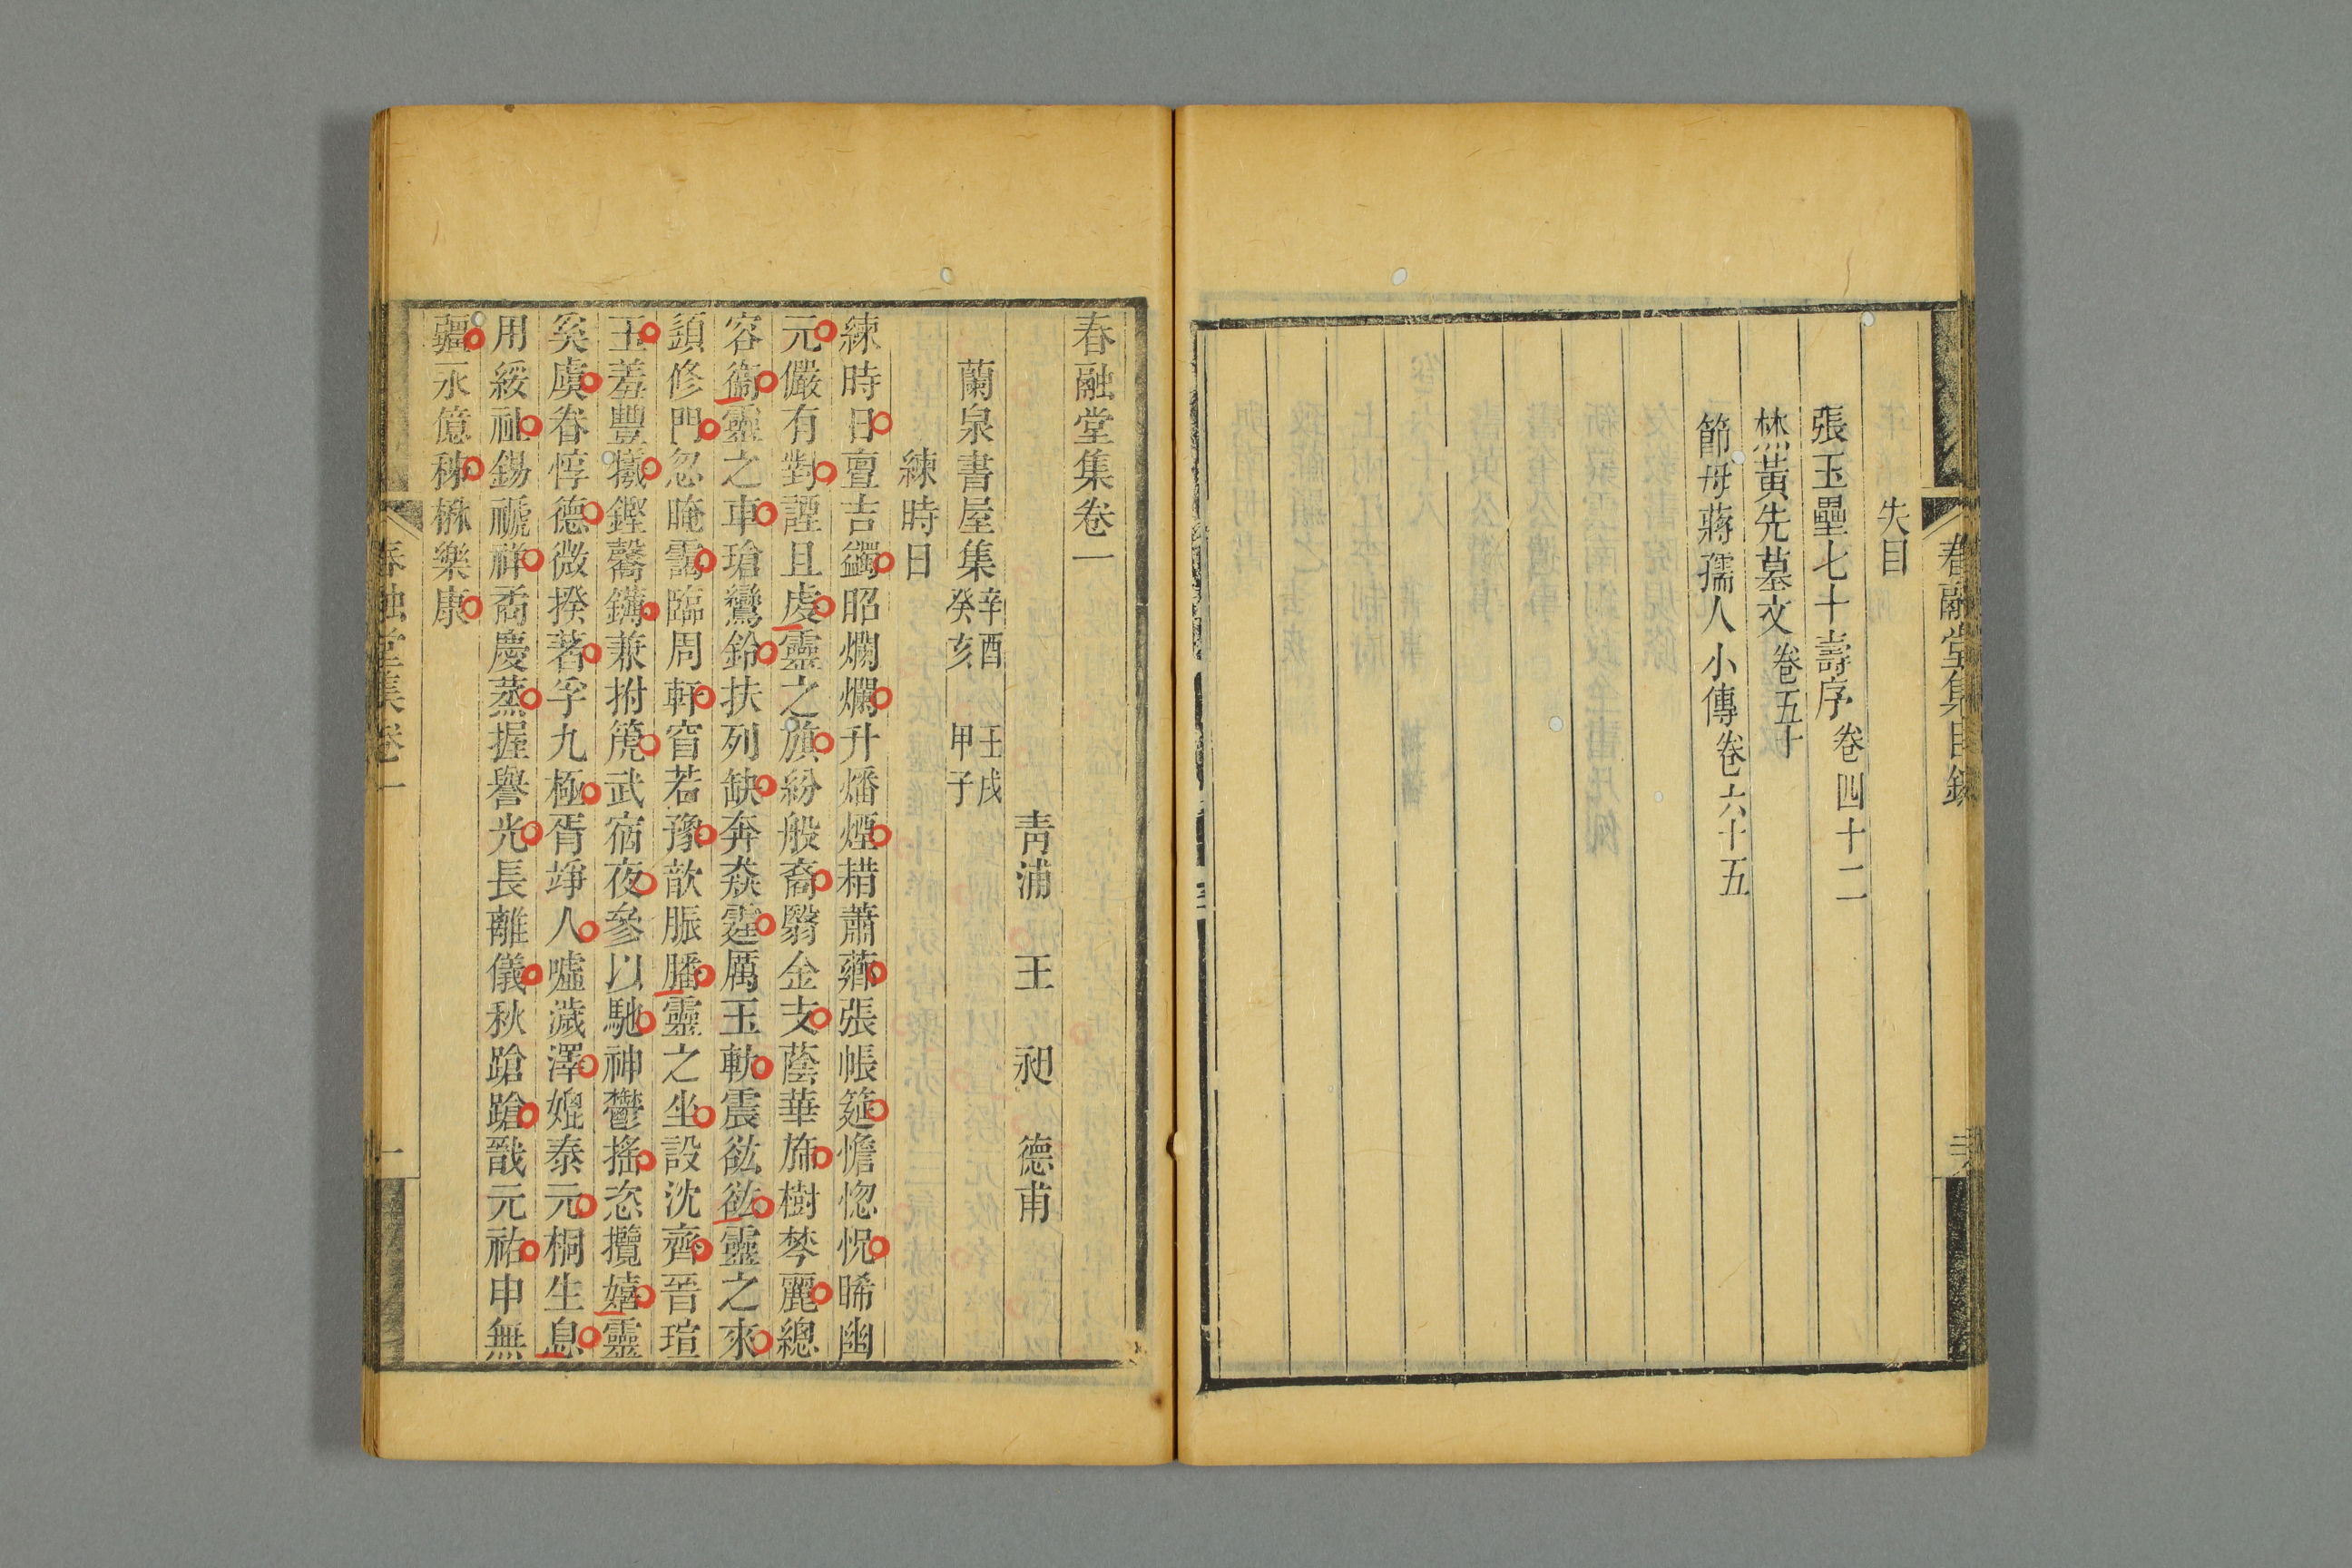 春融堂集目錄
失目
張玉壘七十壽序 卷四十二
焦黃先墓文 卷五十
節母蔣孺人小傳 卷六十五
春融堂集卷一
青浦 王 昶 德甫
蘭泉書屋集 辛酉 壬戌 癸亥 甲子
練時日
練時日亶吉蠲昭爓爓升燔煙耤蕭薌張帳筵憺惚怳睎幽
元儼有對謹且虔靈之旟紛般裔翳金支蔭華旆樹棽麗總
容衛靈之車瑲鸞鈴扶列缺奔猋霆厲玉軑震砝砝靈之來
頟修門忽晻靄臨周軒窅若豫歆脤膰靈之坐設沈齊晉瑄
玉羞豐犧鏗磬鏞兼拊箎武宿夜參以馳神鬱搖恣攬嬉靈
矦虞眷惇德微揆著孚九極胥竫人噓濊澤媲泰元桐生息
用綏祉錫禠祥矞慶蒸握譽光長離儀秋蹌蹌戩元祐申無
疆永億秭楙樂康
春融堂集 卷一
一